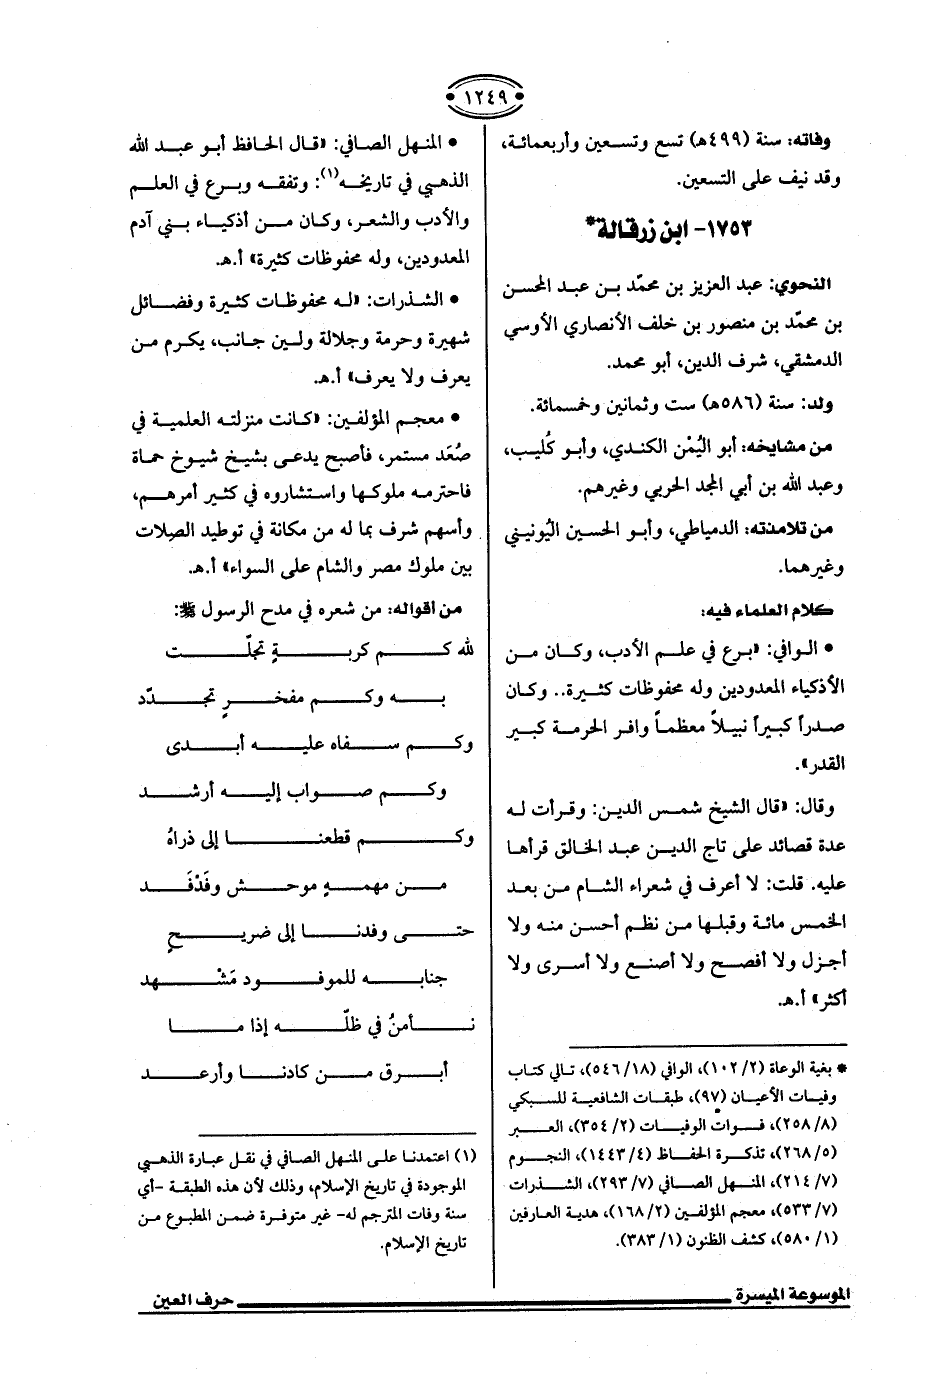 ١٢٤٩
وفاته: سنة (٤٩٩هـ) تسع وتسعين وأربعمائة،
وقد نيف على التسعين.
١٧٥٣- ابن زرقالة*
النحوي: عبد العزيز بن محمّد بن عبد المحسن
بن محمّد بن منصور بن خلف الأنصاري الأوسي
الدمشقي، شرف الدين، أبو محمد.
ولد: سنة (٥٨٦هـ) ست وثمانين وخمسمائة.
من مشايخه: أبو اليُمْن الكندي، وأبو كُليب،
وعبد الله بن أبي المجد الحربي وغيرهم.
من تلامذته: الدمياطي، وأبو الحسين اليُونيني
وغيرهما.
كلام العلماء فيه:
• الوافي: «برع في علم الأدب، وكان من
الأذكياء المعدودين وله محفوظات كثيرة.. وكان
صدراً كبيراً نبيلاً معظماً وافر الحرمة كبير
القدر».
وقال: «قال الشيخ شمس الدين: وقرأت له
عدة قصائد على تاج الدين عبد الخالق قرأها
عليه. قلت: لا أعرف في شعراء الشام من بعد
الخمس مائة وقبلها من نظم أحسن منه ولا
أجزل ولا أفصح ولا أصنع ولا أسرى ولا
أكثر» أ.هـ.
* بغية الوعاة (٢/ ١٠٢)، الوافي (١٨/ ٥٤٦)، تالي كتاب
وفيات الأعيان (٩٧)، طبقات الشافعية للسبكي
(٨/ ٢٥٨)، فوات الوفيات (٢/ ٣٥٤)، العبر
(٥/ ٢٦٨)، تذكرة الحفاظ (٤/ ١٤٤٣)، النجوم
(٧/ ٢١٤)، المنهل الصافي (٧/ ٢٩٣)، الشذرات
(٧/ ٥٣٣)، معجم المؤلفين (٢/ ١٦٨)، هدية العارفين
(١/ ٥٨٠)، كشف الظنون (١/ ٣٨٣).
• المنهل الصافي: «قال الحافظ أبو عبد الله
الذهبي في تاريخه(١): وتفقه وبرع في العلم
والأدب والشعر، وكان من أذكياء بني آدم
المعدودين، وله محفوظات كثيرة» أ.هـ.
• الشذرات: «له محفوظات كثيرة وفضائل
شهيرة وحرمة وجلالة ولين جانب، يكرم من
يعرف ولا يعرف» أ.هـ.
• معجم المؤلفين: «كانت منزلته العلمية في
صُعَد مستمر، فأصبح يدعى بشيخ شيوخ حماة
فاحترمه ملوكها واستشاروه في كثير أمرهم،
وأسهم شرف بما له من مكانة في توطيد الصلات
بين ملوك مصر والشام على السواء» أ.هـ.
من أقواله: من شعره في مدح الرسول ﷺ:
لله كم كربةٍ تجلّت
به وكم مفخرٍ تجدّد
وكم سفاه عليه أبدى
وكم صواب إليه أرشد
وكم قطعنا إلى ذراهُ
من مهمهٍ موحش وفَدْفَد
حتى وفدنا إلى ضريحٍ
جنابه للموفود مَشْهد
نأمنُ في ظلّه إذا ما
أبرق من كادنا وأرعد
(١) اعتمدنا على المنهل الصافي في نقل عبارة الذهبي
الموجودة في تاريخ الإسلام، وذلك لأن هذه الطبقة -أي
سنة وفات المترجم له- غير متوفرة ضمن المطبوع من
تاريخ الإسلام.
الموسوعة الميسرة حرف العين